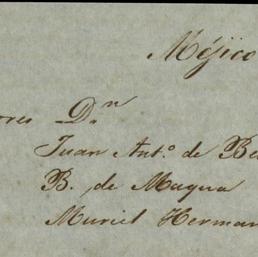 Méjico
ores Dn
Juan Anto. de Be
B. de Maqua
Muriel Herman